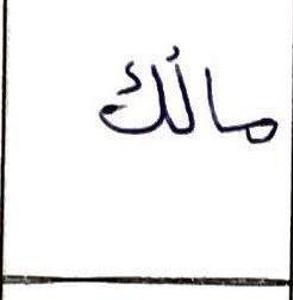 مالُك